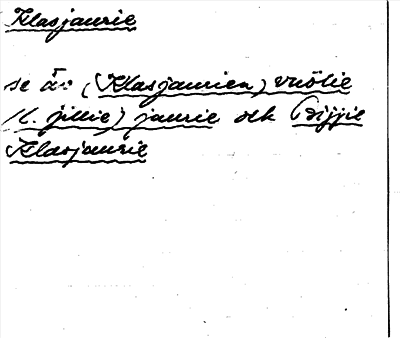 Klasjaurie
se äv. (Klasjaurien) vuölie
(l. jillie) jaurie och bijjie
Klasjaurie